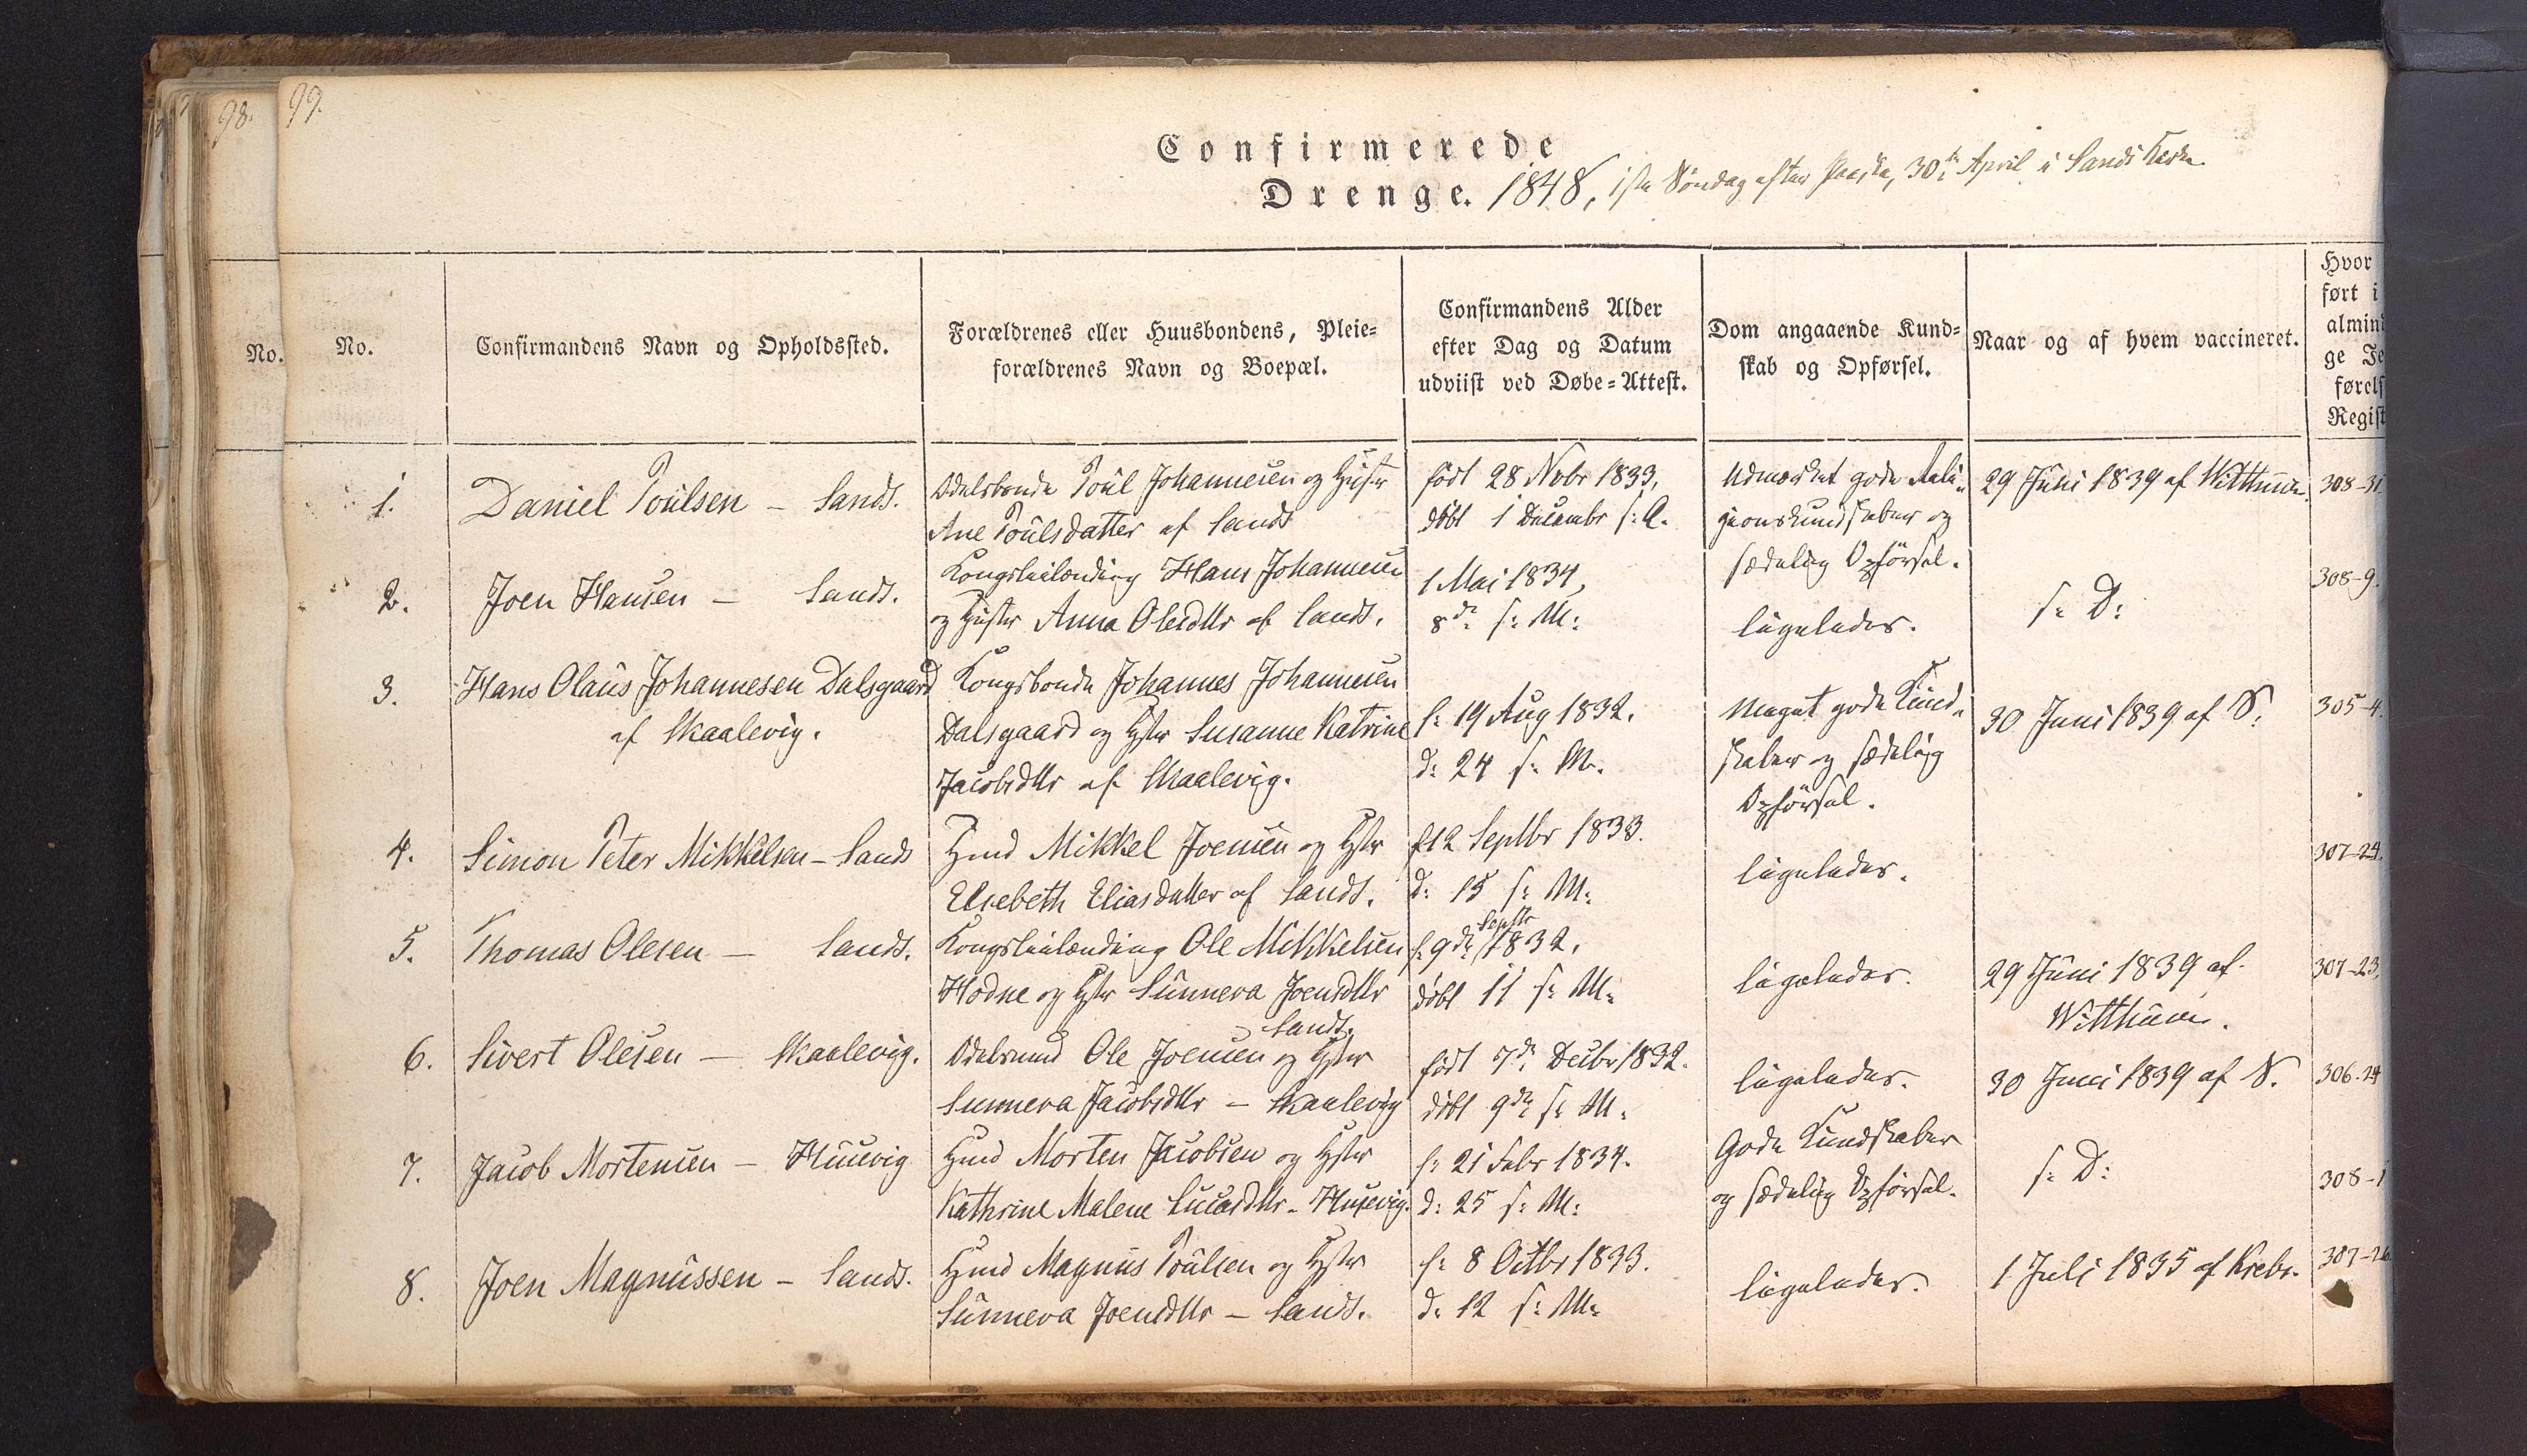 98.
99.
Confirmerede
Drenge. 1848, 1ste Søndag efter Paaske, 30te April i Sands Kirke
No.
No.
Confirmandens Navn og Opholdssted.
Forældrenes eller Huusbondens, Pleie=
forældrenes Navn og Boepæl.
Confirmandens Alder
efter Dag og Datum
udviist ved Døbe=Attest.
Dom angaaende Kund=
skab og Opførsel.
Naar og af hvem vaccineret.
Hvor
ført i
almind
ge Je
førels
Regist
1.
Daniel Poulsen – Sands.
Odelsbonde Poul Johannesen og Hustr
Ane Poulsdatter af Sands
født 28 Nvbr 1833,
døbt 1 Decembr s: A.
Udmærket gode Reli-
gionskundskaber og
sædelig Opførsel.
29 Juni 1839 af Witthusen.
308-31.
2.
Joen Hansen – Sands.
Kongsleilænding Hans Johannesen
og Hustr Anna Olesdttr af Sands.
1 Mai 1834,
8de s: M:
ligeledes.
s: D:
308-9.
3.
Hans Olaus Johannesen Dalsgaard
af Skaalevig.
Kongsbonde Johannes Johannesen
Dalsgaard og Hstr Susanne Katrine
Jacobsdttr af Skaalevig.
f: 19 Aug 1832.
d: 24 s: M.
Meget gode Kund-
skaber og sædelig
Opførsel.
30 Juni 1839 af S.
305-4.
4.
Simon Peter Mikkelsen – Sands
Hmd Mikkel Joensen og Hstr
Elsebeth Eliasdatter af Sands.
f 12 Septbr 1833.
d: 15 s: M:
ligeledes.
307-24.
5.
Thomas Olesen – Sands.
Kongsleilænding Ole Mikkelsen
Hodne og Hstr Sunneva Joensdttr
Sands.
f: 9de Septbr 1832.
døbt 11 s: M:
ligeledes.
29 Juni 1839 af
Witthusen.
307-23.
6.
Sivert Olesen – Skaalevig.
Odelsmand Ole Joensen og Hstr
Sunneva Jacobsdttr – Skaalevig
født 7de Decbr 1832.
døbt 9de s: M.
ligeledes.
30 Juni 1839 af S.
306-24
7.
Jacob Mortensen – Husevig
Hmd Morten Jacobsen og Hstr
Kathrine Malene Lucasdttr – Husevig.
f: 21 Febr 1834.
d: 25 s: M:
Gode Kundskaber
og sædelig Opførsel.
s: D:
308-1
8.
Joen Magnussen – Sands.
Hmd Magnus Poulsen og Hstr
Sunneva Joensdttr – Sands.
f: 8 Octbr 1833.
d: 12 s: M:
ligeledes.
1 Juli 1835 af Krebs.
307-26